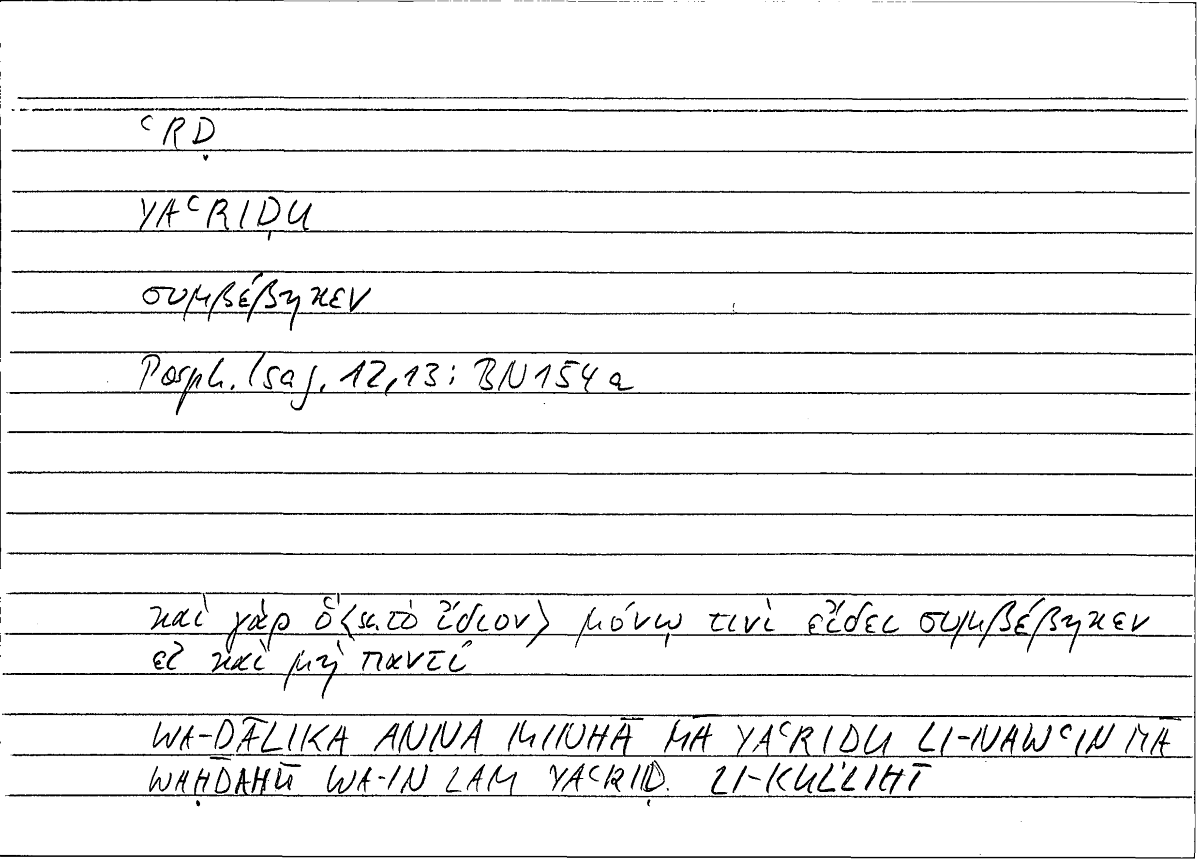 ᶜRḌ
YAᶜRIḌU
συμβέβηκεν
Porph. Isag. 12,13: BN154a
καὶ γὰρ ὃ ⟨sc. τὸ ἴδιον⟩ μόνῳ τινὶ εἴδει συμβέβηκεν
εἰ καὶ μὴ παντί
WA-ḎĀLIKA ANNA MINHĀ MĀ YAᶜRIDU LI-NAWᶜIN MĀ
WAḤDAHŪ WA-IN LAM YAᶜRIḌ LI-KULLIHĪ